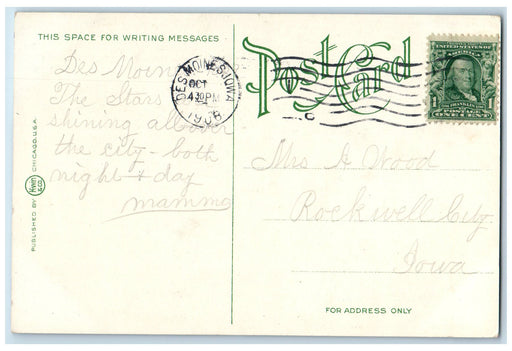 THIS SPACE FOR WRITING MESSAGES
Post Card
Des Moines
The Stars
shining all over
the city - both
night & day
mamma
DES MOINES, IOWA
OCT
430 PM
1908
UNITED STATES OF AMERICA
FRANKLIN
1 1
ONE CENT
Mrs A Wood
Rockwell City
Iowa
FOR ADDRESS ONLY
PUBLISHED BY CHICAGO, U.S.A.